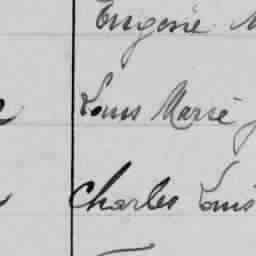 Eugène
Louis Marie
Charles Louis